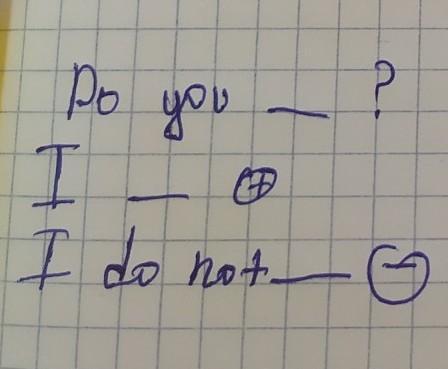 Do you __ ?
I __ ⊕
I do not __ ⊖